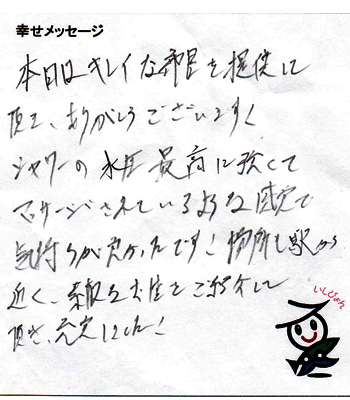 幸せメッセージ
本日はキレイな部屋を提供して
頂き、ありがとうございます
シャワーの水圧最高に強くて
マッサージされているような感じで
気持ちが良かったです！場所も駅から
近く、素敵な人生をご紹介して
頂き、
いしじょん